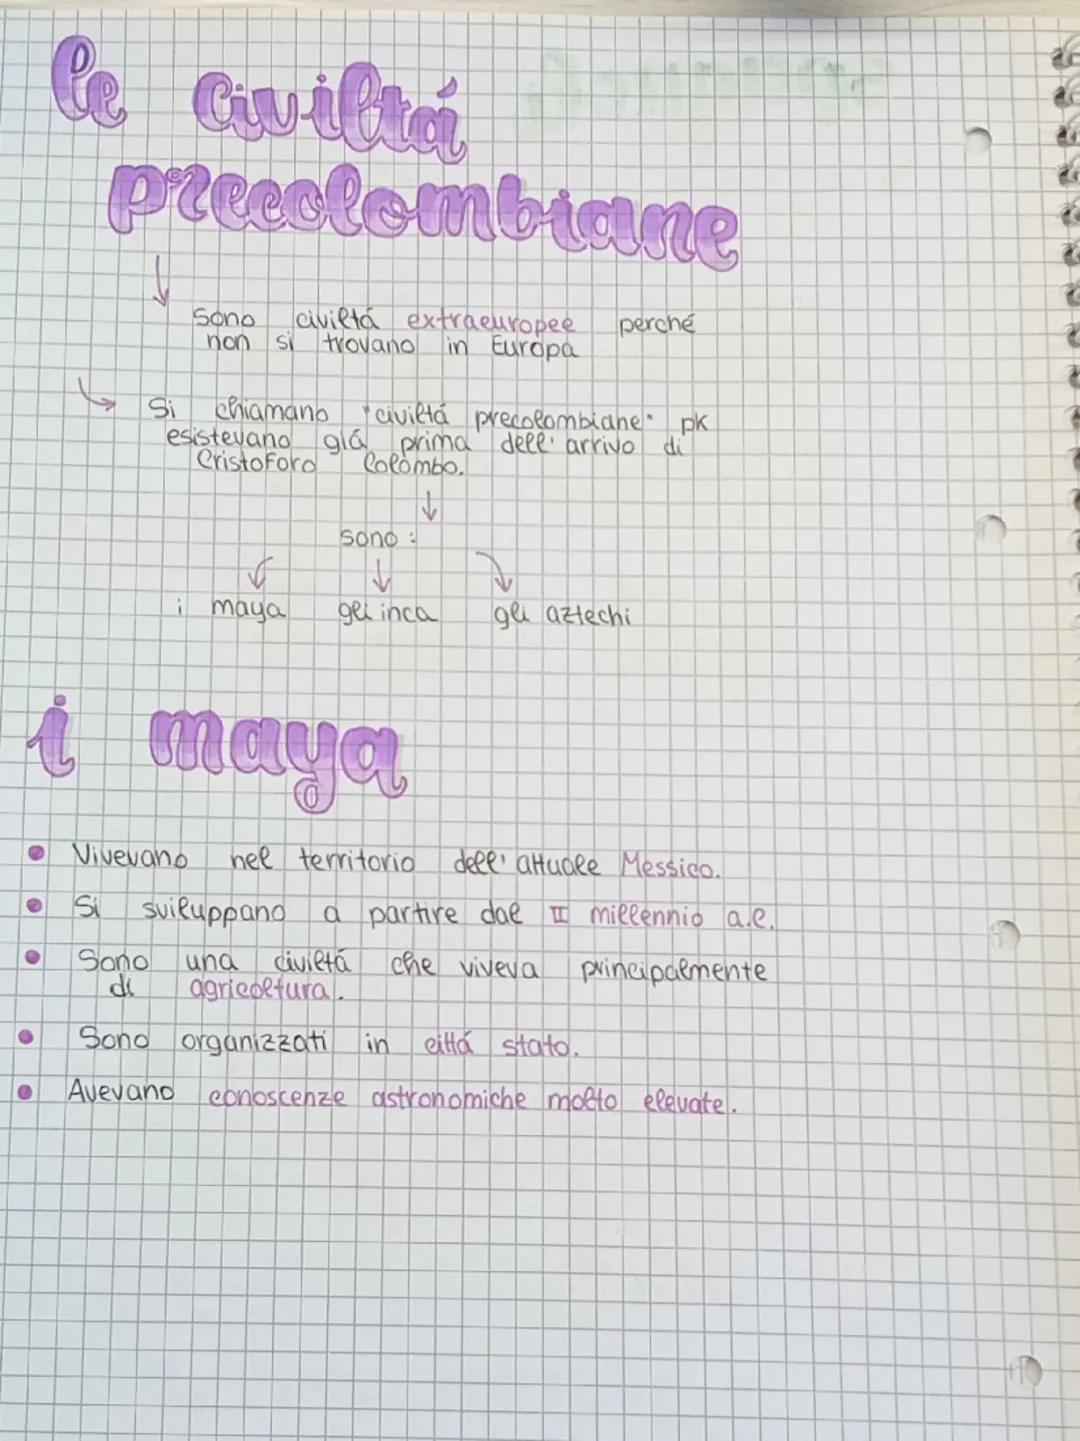 le civiltá
precolombiane
sono civiltá extraeuropee perché
non si trovano in Europa
Si chiamano "civiltá precolombiane" pk
esistevano giá prima dell'arrivo di
Cristoforo Colombo.
sono:
i maya gli inca gli aztechi
i maya
Vivevano nel territorio dell'attuale Messico.
Si sviluppano a partire dal II millennio a.c.
Sono una civiltá che viveva principalmente
di agricoltura.
Sono organizzati in cittá stato.
Avevano conoscenze astronomiche molto elevate.